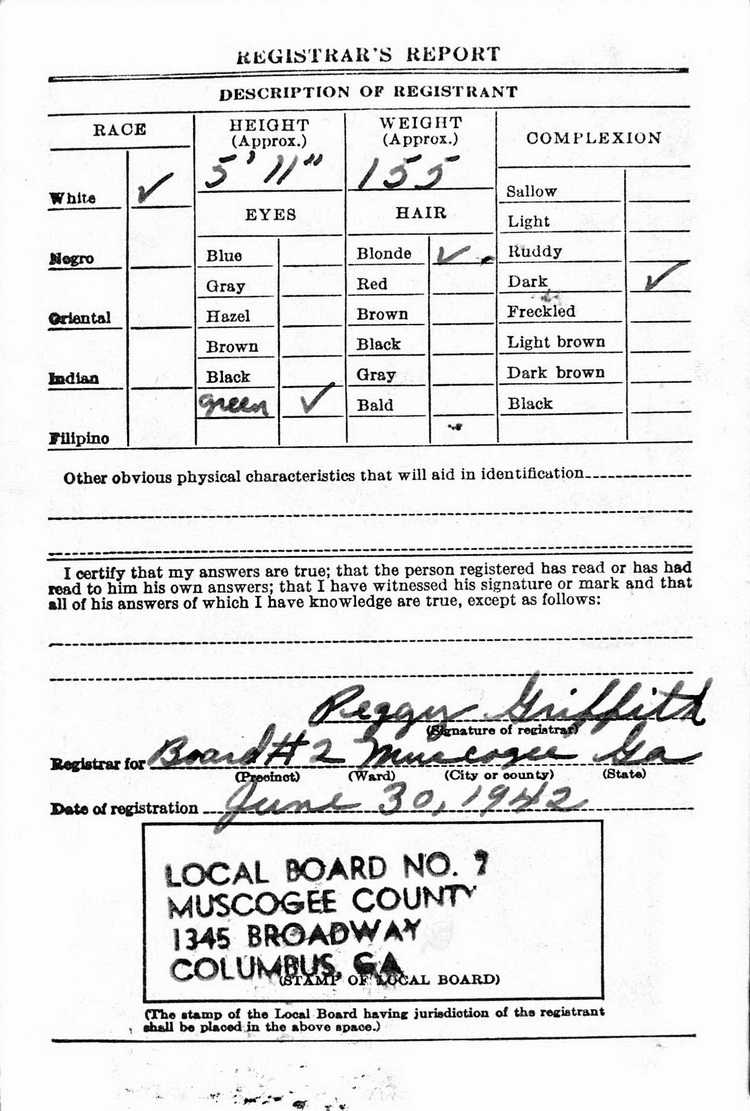 REGISTRAR'S REPORT
DESCRIPTION OF REGISTRANT
RACE
HEIGHT
(Approx.)
WEIGHT
(Approx.)
COMPLEXION
5' 11"
155
White ✓
EYES
HAIR
Sallow
Light
Negro
Blue
Blonde ✓
Ruddy
Gray
Red
Dark ✓
Oriental
Hazel
Brown
Freckled
Brown
Black
Light brown
Indian
Black
Gray
Dark brown
green ✓
Bald
Black
Filipino
Other obvious physical characteristics that will aid in identification
I certify that my answers are true; that the person registered has read or has had
read to him his own answers; that I have witnessed his signature or mark and that
all of his answers of which I have knowledge are true, except as follows:
Peggy Griffith
(Signature of registrar)
Registrar for Board #2 Muscogee Ga
(Precinct) (Ward) (City or county) (State)
Date of registration June 30, 1942
LOCAL BOARD NO.
MUSCOGEE COUNTY
1345 BROADWAY
COLUMBUS, GA
(STAMP OF LOCAL BOARD)
(The stamp of the Local Board having jurisdiction of the registrant
shall be placed in the above space.)